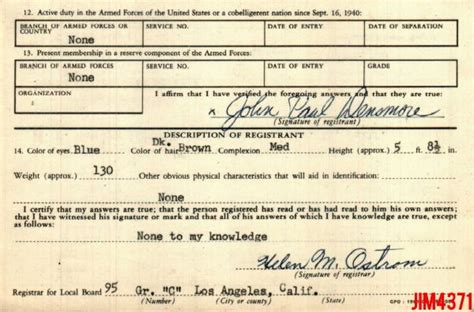 12. Active duty in the Armed Forces of the United States or a cobelligerent nation since Sept. 16, 1940:
BRANCH OF ARMED FORCES OR COUNTRY SERVICE NO. DATE OF ENTRY DATE OF SEPARATION
None
13. Present membership in a reserve component of the Armed Forces:
BRANCH OF ARMED FORCES SERVICE NO. DATE OF ENTRY GRADE
None
ORGANIZATION I affirm that I have verified the foregoing answers and that they are true:
x John Paul Densmore
(Signature of registrant)
DESCRIPTION OF REGISTRANT
14. Color of eyes Blue Color of hair Dk. Brown Complexion Med Height (approx.) 5 ft. 8½ in.
Weight (approx.) 130 Other obvious physical characteristics that will aid in identification:
None
I certify that my answers are true; that the person registered has read or has had read to him his own answers;
that I have witnessed his signature or mark and that all of his answers of which I have knowledge are true, except
as follows:
None to my knowledge
Helen M. Ostrom
(Signature of registrar)
Registrar for Local Board 95 Gr. "C" Los Angeles, Calif.
(Number) (City or county) (State)
JIM4371